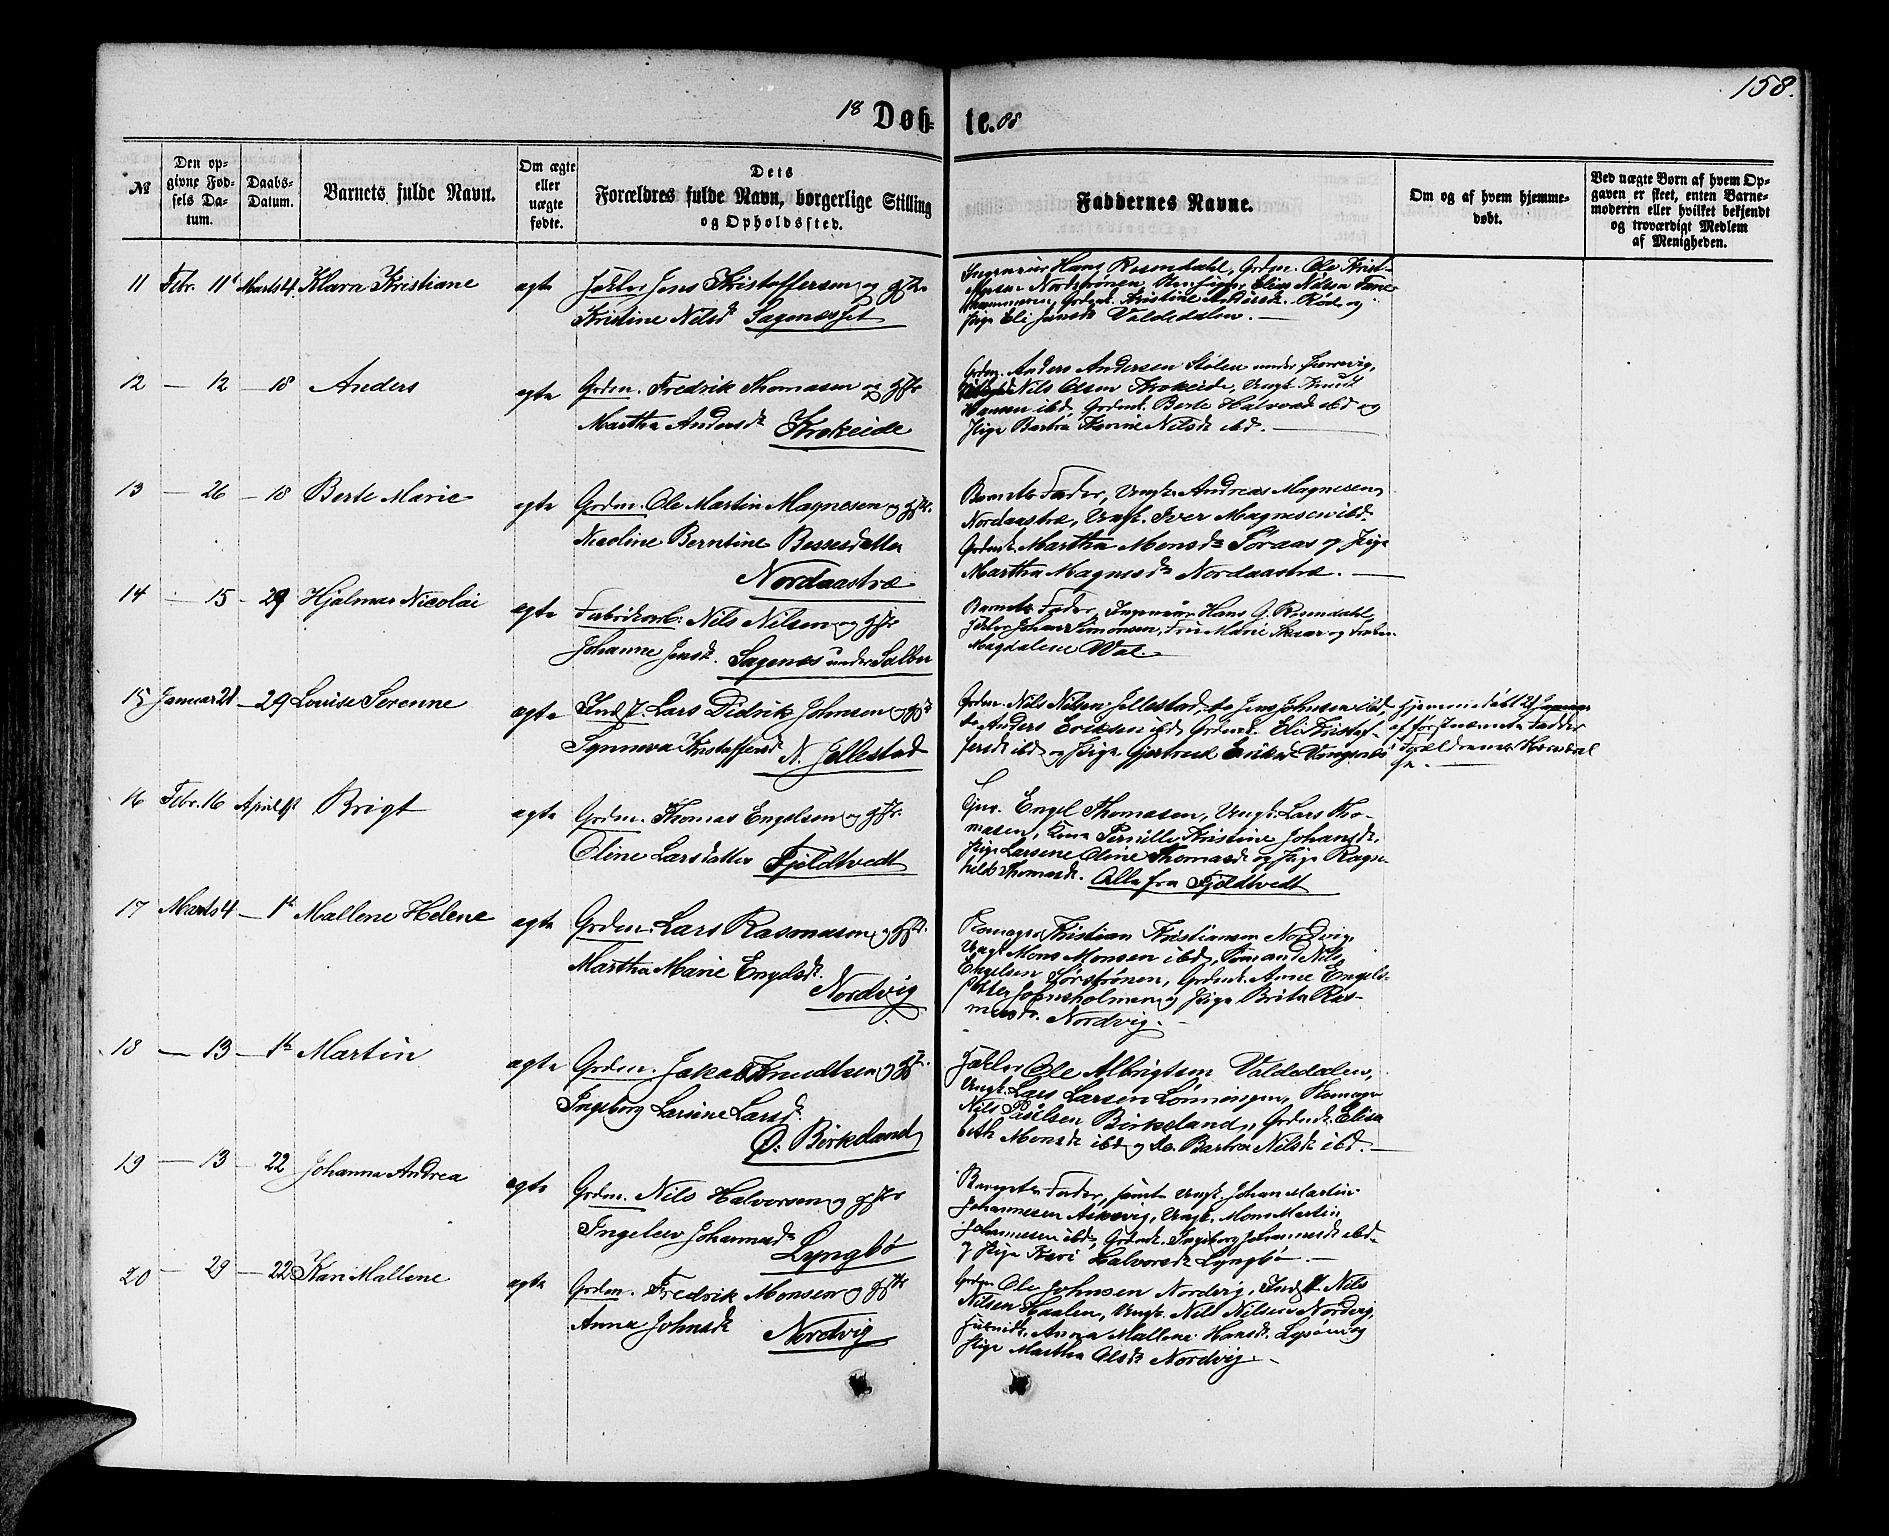 158.
18 Døb- te. 68
№
Den op-
givne Fød-
sels Da-
tum.
Daabs-
Datum.
Barnets fulde Navn.
Om ægte
eller
uægte
fødte.
Dets
Forældres fulde Navn, borgerlige Stilling
og Opholdssted.
Faddernes Navne.
Om og af hvem hjemme-
døbt.
Ved uægte Børn af hvem Op-
gaven er skeet, enten Barne-
moderen eller hvilket bekjendt
og troværdigt Medlem
af Menigheden.
11 Febr. 11t Marts 4 Klara Kristiane ægte Jens Kristoffersen og gjftr.
Kristine Nilsd
Ingeniør Hans Rosendahl, Grdm. Ole Krist-
Elias Nilsen
Kristine
Pige Eli Jensdt Valdedalen.
12 — 12 — 18 Anders ægte Grdm. Fredrik Thomasen og gjftr
Martha Andersdt Krokeide
Grdm. Anders Andersen Stølen under
Nils Olsen Krokeide, Ungk. Knud
Hansen ibd, Grdmk. Berte Halvorsd ibd og
Pige Barbra Karine Nilsdt ibd.
13 — 26 — 18 Berte Marie ægte Grdm. Ole Martin Magnesen og gjftr.
Nicoline Berntine Bessesdatter
Nordaastræ
Barnets Fader, Ungk. Andreas Magnesen
Nordaastræ, Ungk. Iver Magnesen ibd.
Grdmk. Martha Monsdt Søraas og Pige
Martha Magnesdt Nordaastræ.
14 — 15 — 29 Hjalmar Nicolai ægte Fabrikarb. Nils Nilsen og gjftr
Johanne Jensdt. Sagenæs under
Barnets Fader, Ingeniør Hans G. Rosendahl,
Johan Simonsen, Fru Marie Skaar og
Magdalene Wal.
15 Januar 21 — 29 Louise Serenne ægte Indst. Lars Didrik Johnsen og gjftr
Synneva Kristoffersd N. Jellestad
Grdm. Nils Nilsen Jellestad, do Jens Johnsen ibd
do Anders Eriksen ibd, Grdmk. Eli Kristof-
fersdt ibd og Pige Gjertrud Eriksd
Hjemmedøbt 21 Januar
af førstnævnte Fadder
16 Febr. 16 April 1st Brigt ægte Grdm. Thomas Engelsen og gjftr.
Oline Larsdatter Fjeldtvedt
Engel Thomasen, Ungk. Lars Tho-
masen, Kone Pernille Kristine Johansdt,
Pige Larsene Oline Thomasdt og Pige Ragn-
hild Thomasdt. Alle fra Fjeldtvedt
17 Marts 4 — 1st Mallene Helene ægte Grdm. Lars Rasmusen og gjftr.
Martha Marie Engelsdt.
Nordvig
Kristian Kristiansen Nordvig,
Ungk Mons Monsen ibd, Sømand Nils
Engelsen Sørstrønen, Grdmk. Anne Engels-
Pige Brita Ras-
musdt. Nordvig.
18 — 13 — 1st Martin ægte Grdm. Jakob Knudtsen og gjftr.
Ingeborg Larsine Larsdt.
Ø. Birkeland
Ole Albrigtsen Valdedalen,
Ungk. Lars Larsen Lønningen,
Nils Paulsen Birkeland, Grdmk. Elisa
beth Monsdt ibd og do. Barbra Nilsdt ibd.
19 — 13 — 22 Johanna Andrea ægte Grdm. Nils Halvorsen og gjftr
Ingelev Johannesdt Lyngbø
Barnets Fader, samt Ungk. Johan Martin
Johannesen Askevig, Ungk. Mons Martin
Johannesen ibd, Grdmk. Ingeborg Johannesdt ibd.
og Pige Kari Halvorsdt Lyngbø.
20 — 29 — 22 Kari Mallene ægte Grdm. Fredrik Monsen og gjftr
Anna Johnsdt Nordvig
Grdm. Ole Johnsen Nordvig, Indst Nils
Nilsen Haalen, Ungk. Nils Nilsen Nordvig,
Anna Mallene Hansdt. Lysøen og
Pige Martha Olsdt Nordvig.